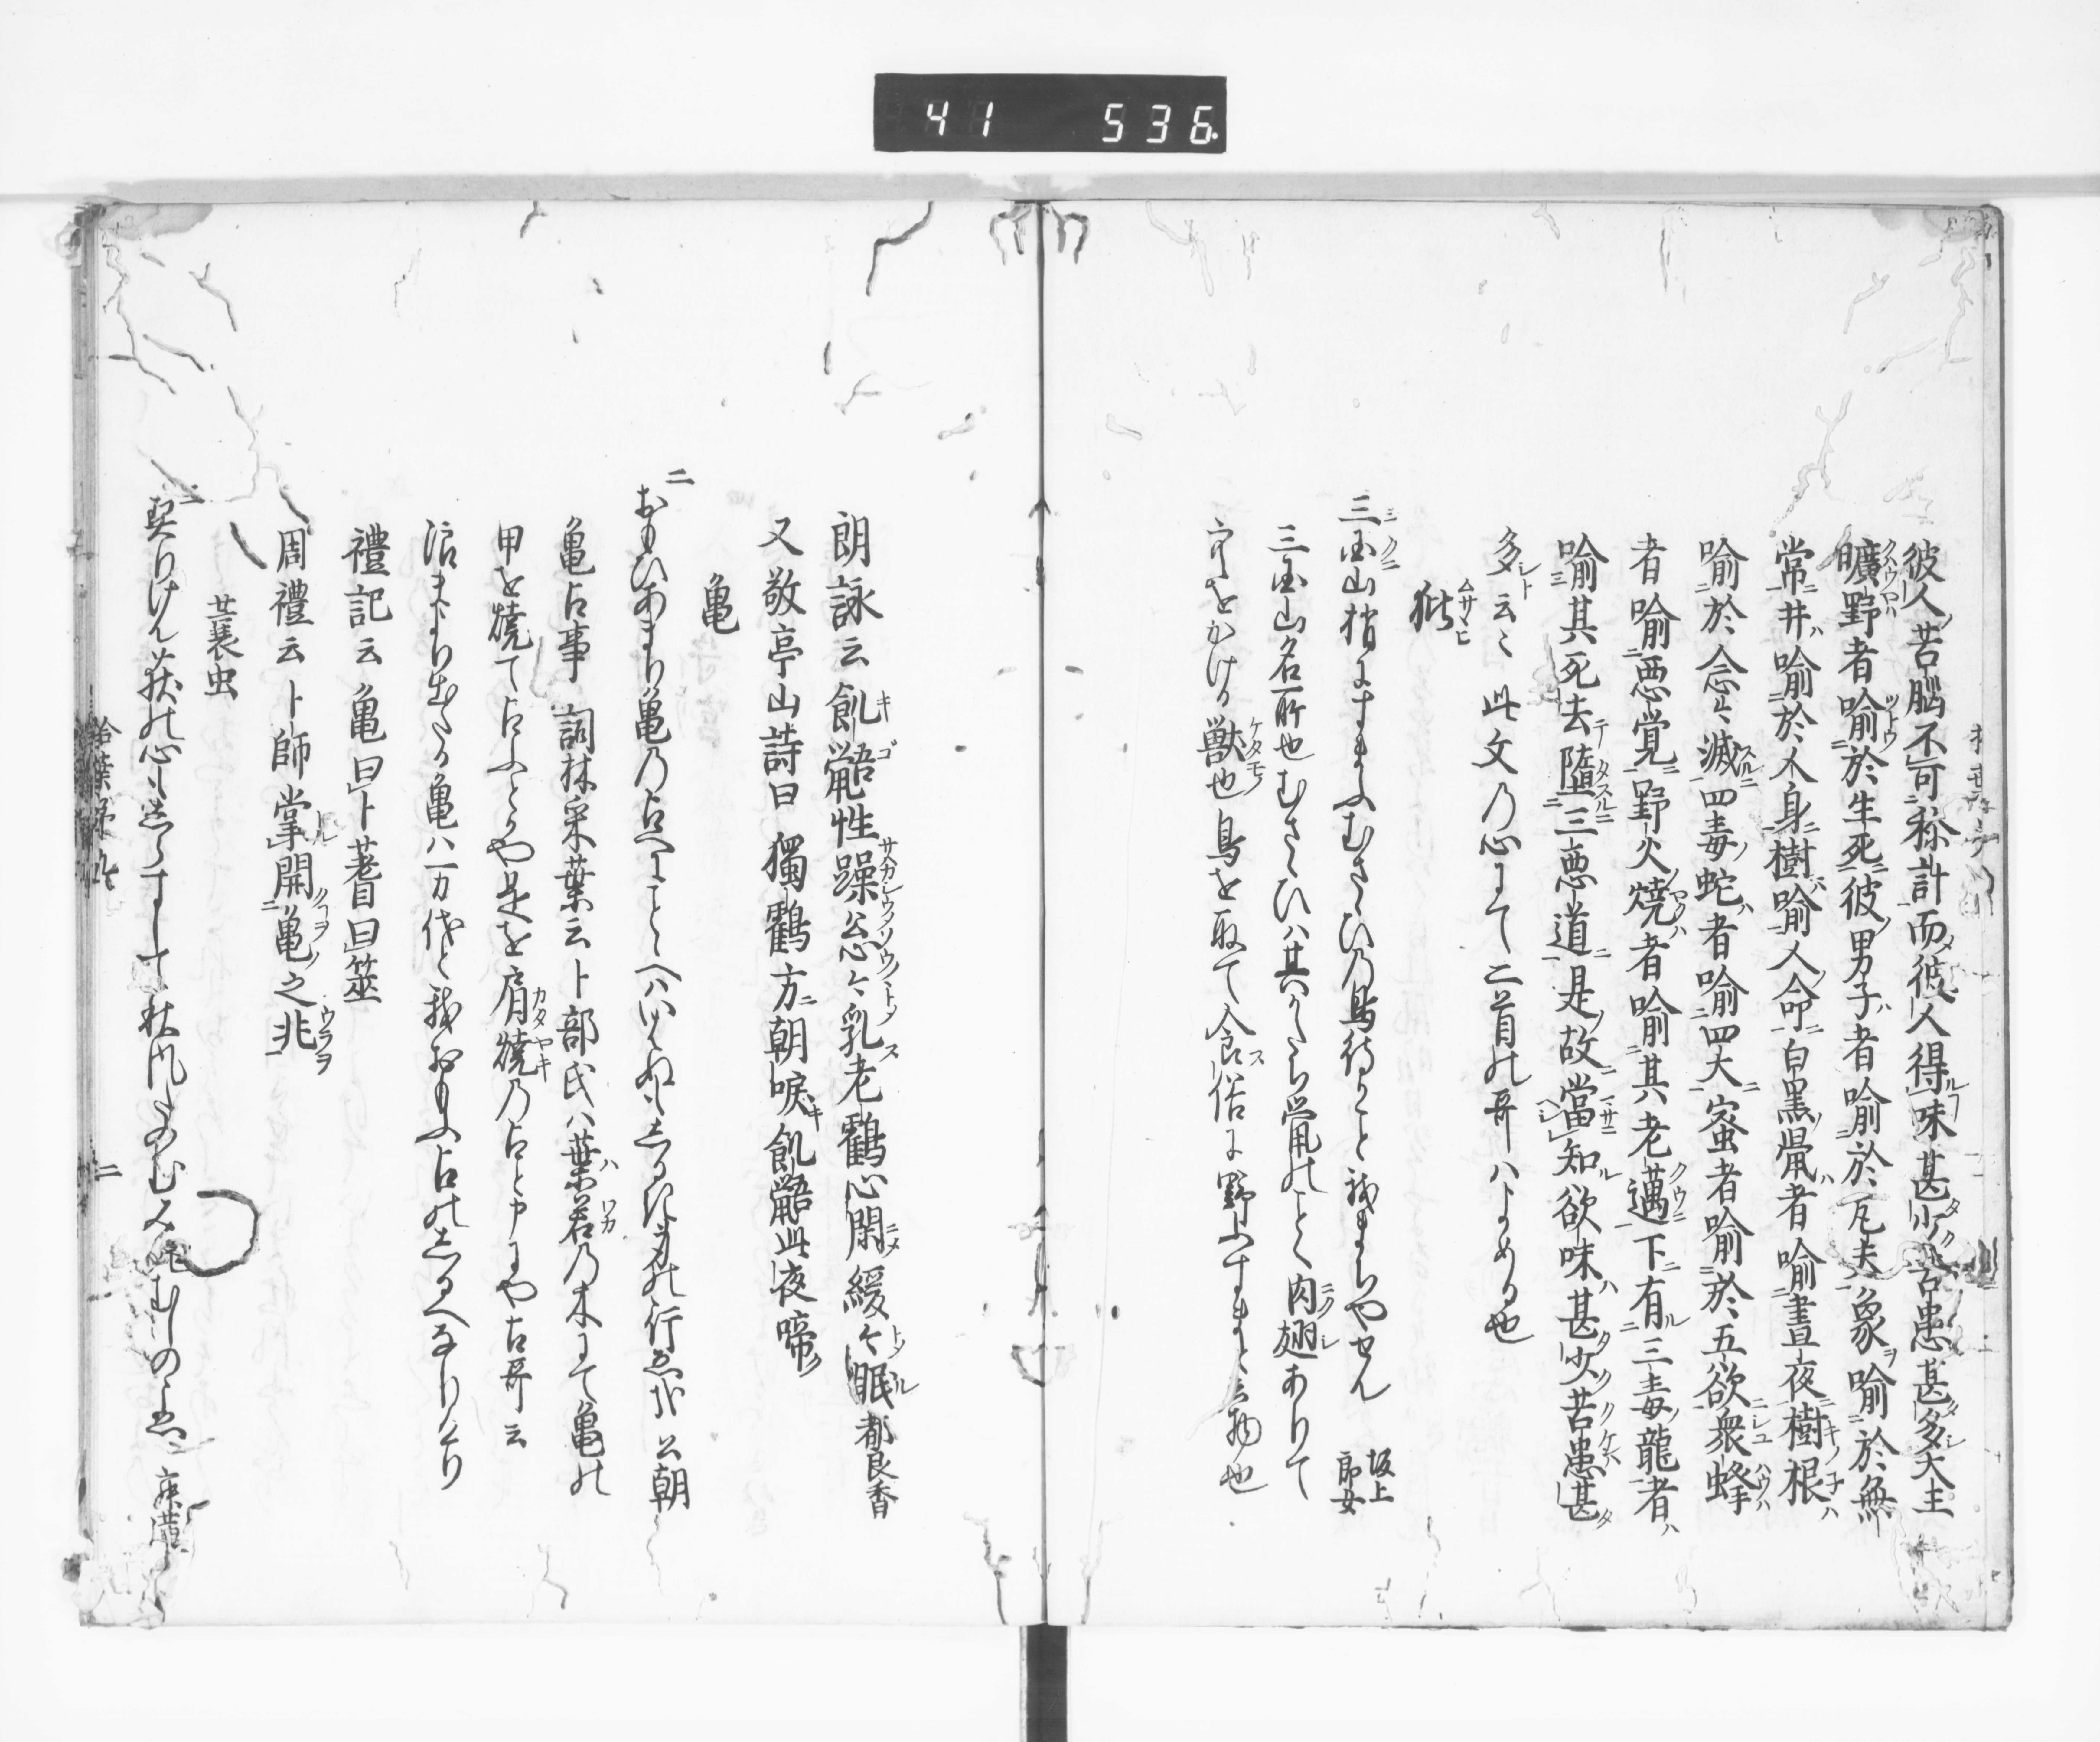 41 536
彼人苦脳不可称計而彼人得味甚少苦患甚多大王
曠野者喩於生死彼男子者喩於凡夫象喩於無
常井喩於人身樹喩人命白黒鼠者喩晝夜樹根
喩於念々滅四毒蛇者喩四大蜜者喩於五欲衆蜂
者喩悪覚野火焼者喩其老邁下有三毒龍者
喩其死去墮三悪道是故當知欲味甚少苦患甚
多云〻 此文乃心にて二首の哥ハよめる也
ムサヽヒ
三国山梢にすまふむさゝひの鳥待かこと我まちやせん 坂上郎女
三国山名所也むさゝひハ其かたち鼠のことく肉翅ありて
かける獣也鳥を取て食俗に野ふすまと云物也
朗詠云 飢鼯性躁忩々乳老鶴心閑緩々眠 都良香
又敬亭山詩曰 獨鶴方朝唳飢鼯此夜啼
亀
二
おもひあまり亀乃占へにことゝへハいはぬもしるき身の行ゑかな 公朝
亀占事 詞林采葉云卜部氏ハ葉若乃木にて亀の
甲を焼て占ふとかや是を肩焼乃占と申にや古哥云
亀ハ万代と我おもふ占のしるへなりけり
禮記云 亀曰卜蓍曰筮
周禮云 卜師掌開亀之兆
蓑虫
二
契りけん荻の心もしらすして秋風たのむみのむしのこゑ
拾葉第九
二